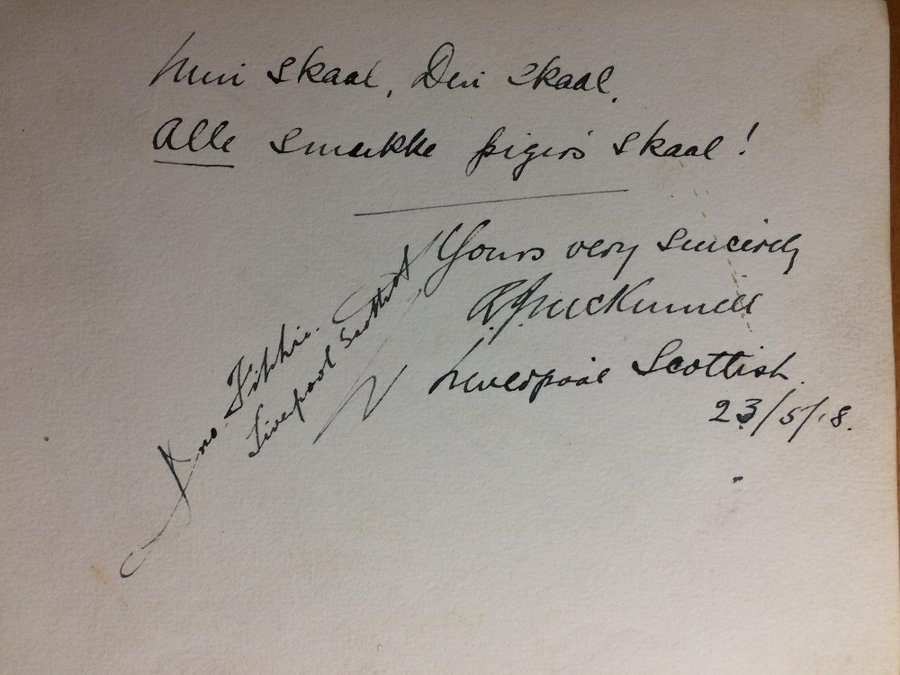 Min Skaal, Din Skaal.
Alle smukke pigers skaal!
Yours very sincerely
R.J. McKinnell
Liverpool Scottish.
23/5/18.
Jno.
Liverpool Scottish